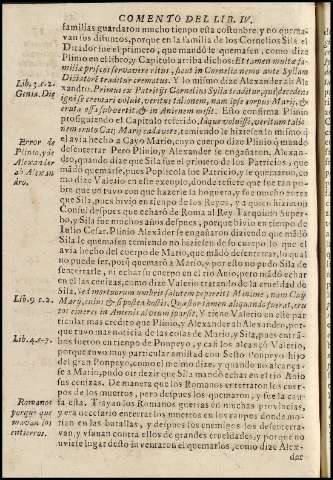 COMENTO DEL LIB. IV.
familias guardaron mucho tiempo esta costumbre, y no quema-
van sus difuntos, porque en la familia de los Cornelios Sila el
Ditador fue el primero, que mandó le quemasen, como dize
Plinio en el libro, y Capitulo arriba dichos: Et tamen multæ fa-
miliæ priscos servavere ritus, sicut in Cornelia nemo ante Syllam
Dictatorẽ traditur crematus. Y lo mismo dize Alexander ab Ale-
xandro. Primus ex Patritijs Cornelius Sylla traditur, qui
igni se cremari voluit, veritus talionem, nam ipse corpus Marij,
eruta ossa in Anienem
prosiguiendo el Capitulo referido, veritum talio-
nem eruto Caij Marij cadavere, temiendo le hiziesen lo mismo q̃
el avia hecho a Cayo Mario, cuyo cuerpo dize Plinio q̃ mandó
desenterrar, Pero Plinio, y Alexander se engañaron, Alexan-
dro, quando dize que Sila fue el primero de los Patricios, que
mãdó quemarse, pues Popilicola fue Patricio, y le quemaron, co
mo dize Valerio en este exemplo, donde refiere que fue tan po-
bre que no tuvo con que hazerle la hoguera, y fue mucho antes
que Sila, pues bivio en tiempo de los Reyes, y a quien hizieron
Consul despues que echarõ de Roma al Rey Tarquinio Super-
bo, y Sila fue muchos años despues, porque bivio en tiempo de
Iulio Cesar. Plinio y Alexãder se engañaron diziendo que mãdó
Sila le quemasen temiendo no hiziesen de su cuerpo lo que el
avia hecho del cuerpo de Mario, que mãdó desenterrar, lo qual
no puede ser, porq̃ quemarõ a Mario, y por esto no pudo Sila de
senterrarle, ni echar su cuerpo en el rio Anio, pero mãdó echar
en el las cenizas, como dize Valerio tratando de la crueldad de
Sila,
Marij, cuius
tos cineres in Anienis alveum sparsit. Y tiene Valerio en este par
ticular mas credito que Plinio, y Alexander ab Alexandro, por-
que tuvo mas noticia de las cosas de Mario, y Sila, pues entrã-
bos fueron en tiempo de Ponpeyo, y casi los alcanço Valerio,
porque tuvo muy particular amistad con Sesto Ponpeyo hijo
del gran Ponpeyo, como el mesmo dize, y quando no alcança-
se a Mario, pudo ser dixese que Sila mandó echar en el rio Anio
sus cenizas. De manera que los Romanos enterraron los cuer-
pos de los muertos, pero despues los quemaron, y fue la cau-
sa esta. Trayan los Romanos guerras en muchas provincias,
y era necesario enterrar los muertos en los campos donde mo-
rian en las batallas, y despues los enemigos los desenterra-
van, y usavan contra ellos de grandes crueldades, y porque no
uviese lugar desto inventaron el quemarlos, como dize Alexã-
dar
Lib. 3. c. 2.
Genia. Die
Error de
Plinio, y de
Alexander
ab Alexan
dro.
Lib. 9. c. 2.
Lib. 4. c. 7.
Romanos
porque que
mavan los
entierros.